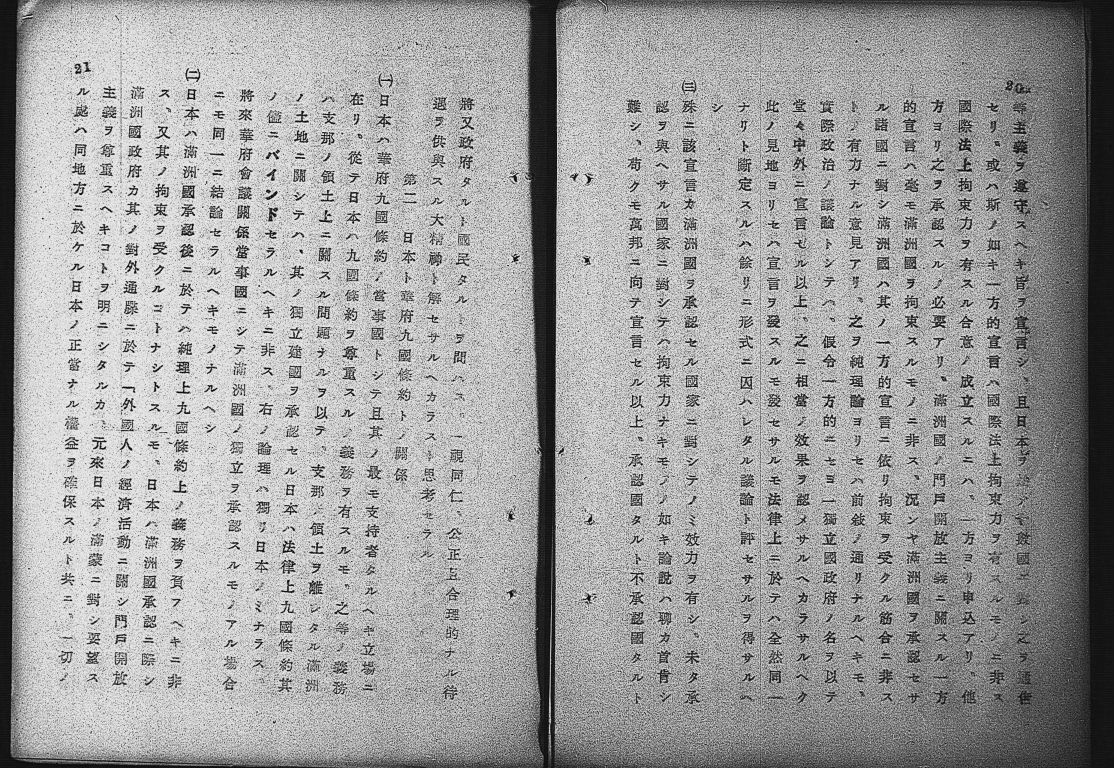 20
等主義ヲ遵守スヘキ旨ヲ宣言シ、且日本ヲ
セリ。或ハ斯ノ如キ一方的宣言ハ國際法上拘束力ヲ有スルモノニ非ス
國際法上拘束力ヲ有スル合意ノ成立スルニハ、一方ヨリ申込アリ、他
方ヨリ之ヲ承認スルノ必要アリ。滿洲國ノ門戶開放主義ニ關スル一方
的宣言ハ毫モ滿洲國ヲ拘束スルモノニ非ス、況ンヤ滿洲國ヲ承認セサ
ル諸國ニ對シ滿洲國ハ其ノ一方的宣言ニ依リ拘束ヲ受クル筋合ニ非ス
トノ有力ナル意見アリ。之ヲ純理論ヨリセハ前敍ノ通リナルヘキモ、
實際政治ノ議論トシテハ、假令一方的ニセヨ一獨立國政府ノ名ヲ以テ
堂々中外ニ宣言セル以上、之ニ相當ノ效果ヲ認メサルヘカラサルヘク
此ノ見地ヨリセハ宣言ヲ發スルモ發セサルモ法律上ニ於テハ全然同一
ナリト斷定スルハ餘リニ形式ニ囚ハレタル議論ト評セサルヲ得サルヘ
シ
㈢殊ニ該宣言カ滿洲國ヲ承認セル國家ニ對シテノミ效力ヲ有シ、未タ承
認ヲ與ヘサル國家ニ對シテハ拘束力ナキモノノ如キ論說ハ聊カ首肯シ
難シ、苟クモ萬邦ニ向テ宣言セル以上、承認國タルト不承認國タルト
將又政府タルト國民タルトヲ問ハス、一視同仁、公正且合理的ナル待
遇ヲ供與スル大精神ト解セサルヘカラスト思考セラル
第二 日本ト華府九國條約トノ關係
㈠日本ハ華府九國條約ノ當事國トシテ且其ノ最モ支持者タルヘキ立場ニ
在リ。從テ日本ハ九國條約ヲ尊重スルノ義務ヲ有スルモ、之等ノ義務
ハ支那ノ領土上ニ關スル問題ナルヲ以テ、支那ノ領土ヲ離レタル滿洲
ノ土地ニ關シテハ、其ノ獨立建國ヲ承認セル日本ハ法律上九國條約其
ノ儘ニバインドセラルヘキニ非ス。右ノ論理ハ獨リ日本ノミナラス、
將來華府會議關係當事國ニシテ滿洲國ノ獨立ヲ承認スルモノアル場合
ニモ同一ニ結論セラルヘキモノナルヘシ
㈡日本ハ滿洲國承認後ニ於テハ純理上九國條約上ノ義務ヲ負フヘキニ非
ス、又其ノ拘束ヲ受クルコトナシトスルモ、日本ハ滿洲國承認ニ際シ
滿洲國政府カ其ノ對外通牒ニ於テ「外國人ノ經濟活動ニ關シ門戶開放
主義ヲ尊重スヘキコトヲ明ニシタルカ、元來日本ノ滿蒙ニ對シ要望ス
ル處ハ同地方ニ於ケル日本ノ正當ナル權益ヲ確保スルト共ニ、一切ノ
21